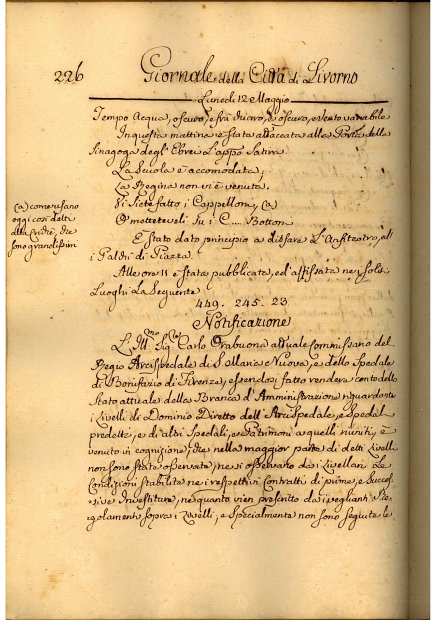 226 Giornale della Città di Livorno
Lunedì 12 Maggio
Tempo Acqua, oscuro, e frà chiaro, e oscuro, e Vento variabile
In questa mattina è stata attaccata alla Porta della
Sinagoga degl' Ebrei L'appo Satira
La Scuola è accomodata;
La Regina non vi è venuta.
Vi siete fatto i Cappelloni, (a)
O metteteveli Su i C.... Botton
(a) come usano
oggi così detti
alla che
sono grandissimi
È Stato dato principio a disfare L'Anfiteatro, al
i Palchi di Piazza.
Alle ore 11 è stata pubblicata, ed affissata ne i soliti
Luoghi La Seguente
449. 245. 23
Notificazione
L'Ill.mo Sig.re Carlo attuale Commissario del
Regio Arcispedale di S. Maria Nuova, e dello Spedale
di Bonifazio di Firenze, essendosi fatto rendere conto dello
Stato attuale della Branca d'Amministrazione riguardante
i Livelli di Dominio Diretto dell'Arcispedale, e Spedal
predetto, e di altri Spedali, e Patrimoni a quelli riuniti, è
venuto in cognizione, che nella maggior parte di detti Livelli
non sono state osservate, ne si osservano da i Livellari Le
Condizioni stabilite ne i respettivi Contratti di prime, e Succes-
sive Investiture, ne quanto vien prescritto da i veglianti Re-
golamenti sopra i Livelli, e Specialmente non sono seguite le